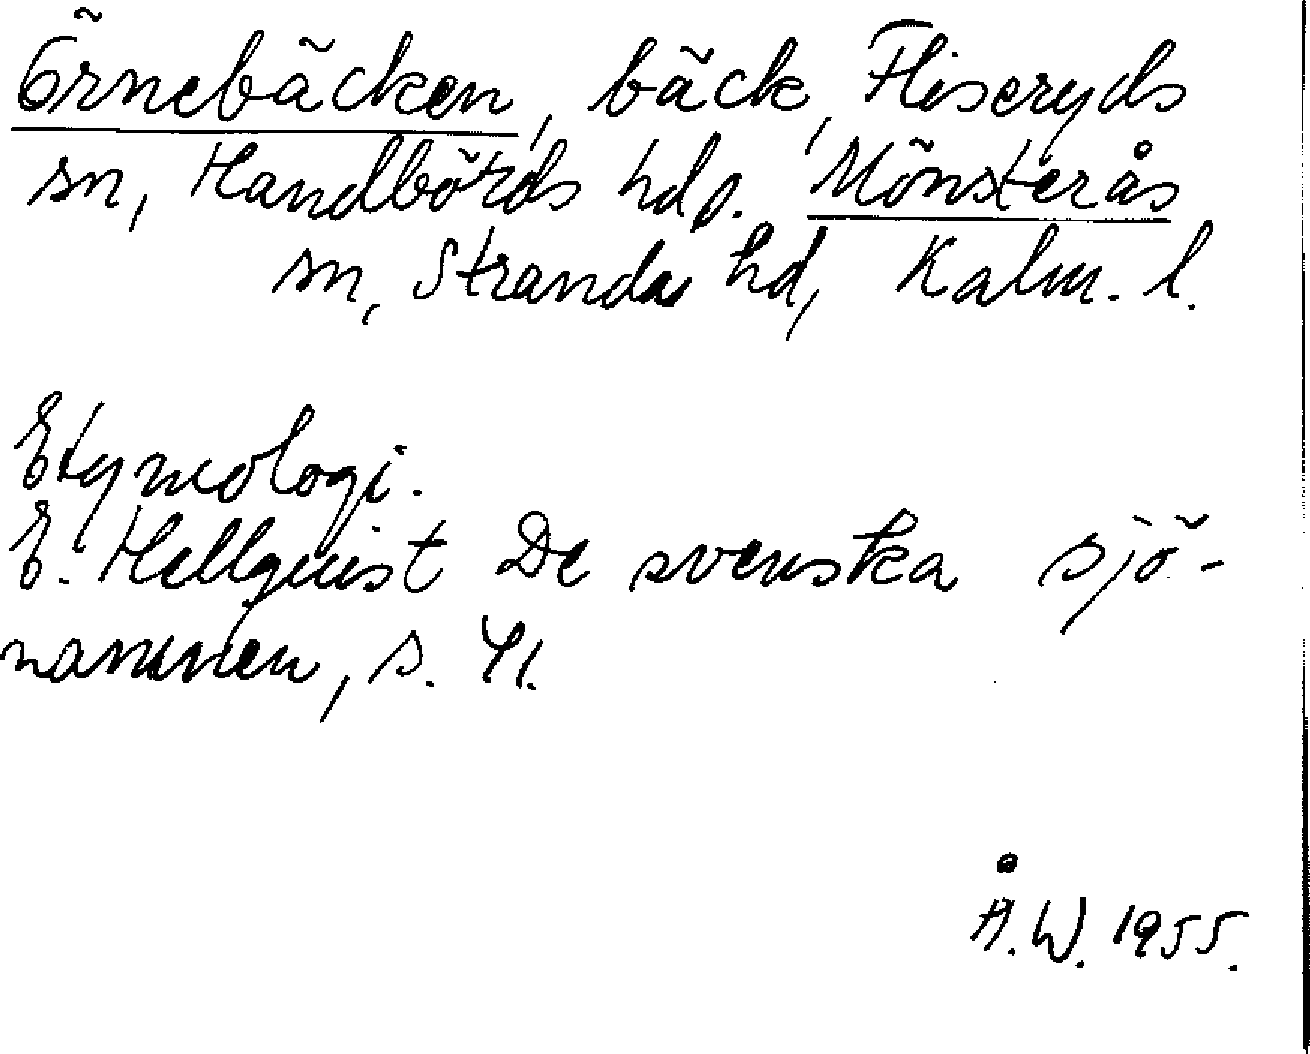 Örnebäcken, bäck, Fliseryds
sn, Handbörds hd, Mönsterås
sn, Stranda hd, Kalm. l.
Etymologi.
E. Hellquist De svenska sjö-
namnen, s. 41.
Å.W. 1955.